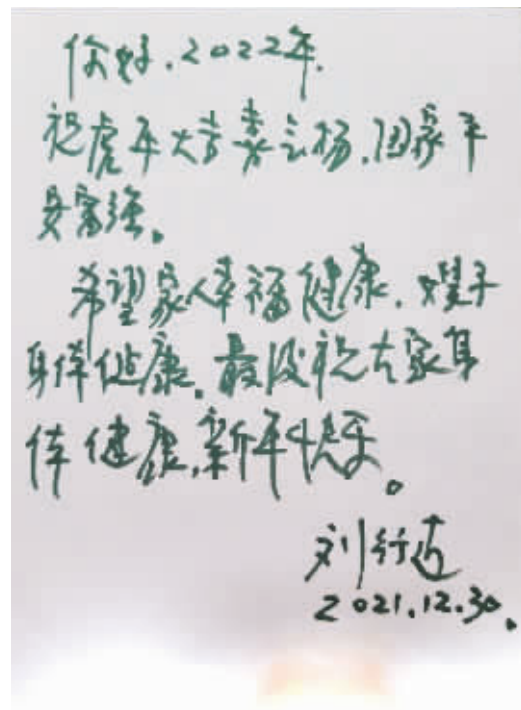 你好.2022年.
祝虎年大吉 飞扬.国家平
安富强。
希望家人幸福健康.嫂子
身体健康.最后祝大家身
体健康.新年快乐。
刘行
2021.12.30.